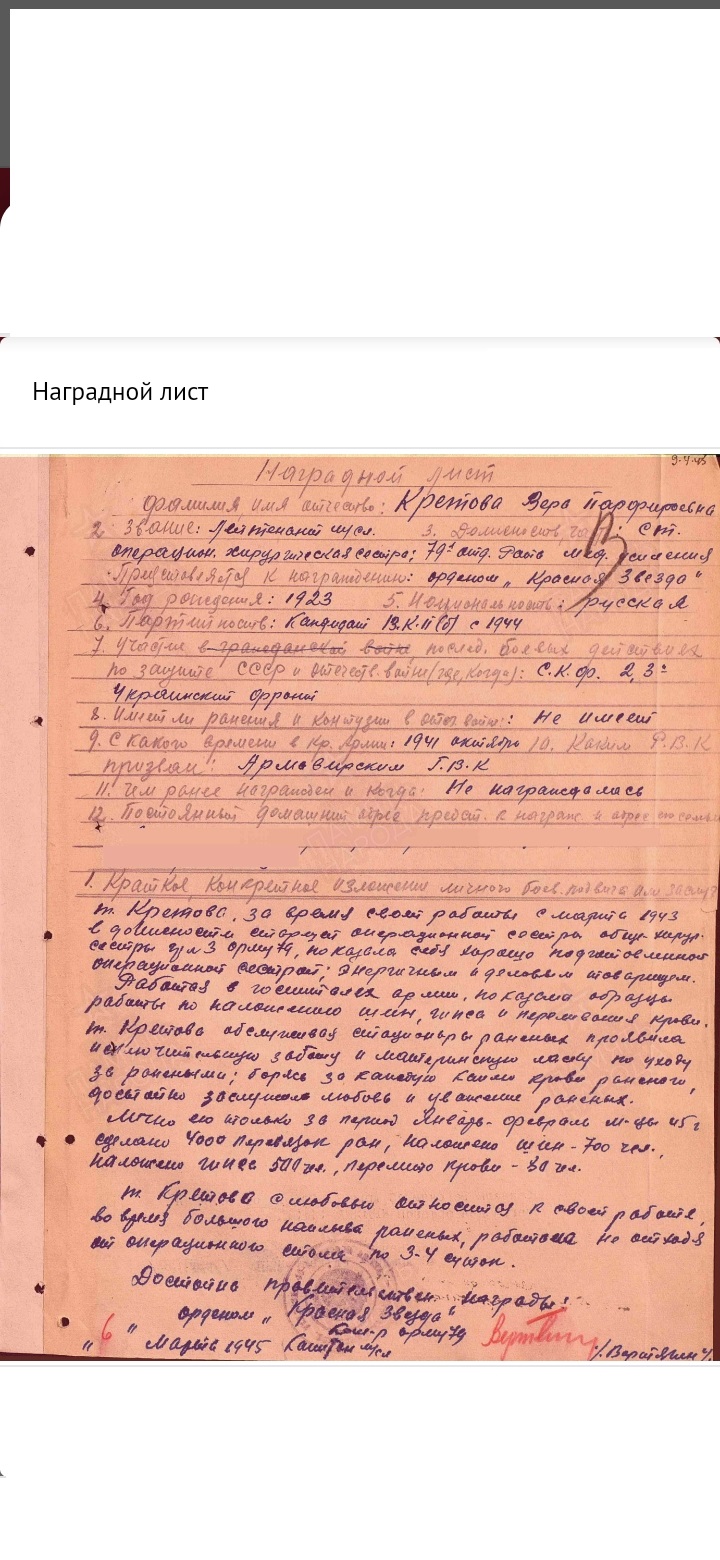 Наградной лист
9-4-45
Наградной лист
Фамилия, имя отчество: Кретова Вера Парфировна
2 Звание: Лейтенант м/сл. 3. Должность, ча : ст.
операцион. хирургическая сестра; 79й отд. Рота мед. усиления
Представляется к награждению: орденом „Красная Звезда“
4. Год рождения: 1923 5. Национальность: русская
6. Партийность: Кандидат В.К.П(б) с 1944
7. Участие в гражданской войне, послед. боевых действиях
по защите СССР и отечеств. войне (где, когда): С.К.Ф. 2, 3й
Украинский фронт
8. Имеет ли ранения и контузии в отеч. войне: Не имеет
9. С какого времени в Кр. Армии: 1941 октября 10. Каким Р.В.К
призван: Армавирским Г.В.К
11. Чем ранее награжден и когда: Не награждалась
12. Постоянный домашний адрес предст. к награжд. и адрес его семьи
1. Краткое, конкретное изложение личного боев. подвига или заслуг
т. Кретова, за время своей работы с марта 1943
в должности старшей операционной сестры обще-хирур.
сестры гр. №3 ОРМУ 79, показала себя хорошо подготовленной
операционной сестрой; энергичным и деловым товарищем.
Работая в госпиталях армии, показала образцы
работы по наложению шин, гипса и переливания крови.
т. Кретова обслуживая стационары раненых проявила
исключительную заботу и материнскую ласку по уходу
за ранеными; борясь за каждую каплю крови раненого,
достойно заслужила любовь и уважение раненых.
Лично ею только за период Январь-февраль м-цы 45 г
сделано 4000 перевязок ран, наложено шин - 700 чел.,
наложено гипса 500 чел., перелито крови - 80 чел.
т. Кретова с любовью относится к своей работе,
во время большого наплыва раненых, работала не отходя
от операционного стола по 3-4 суток.
Достойна правительствен. награды:
орденом „Красная Звезда“
Ком-р ОРМУ 79
„6“ Марта 1945 Капитан м/сл /.Верстягин/.